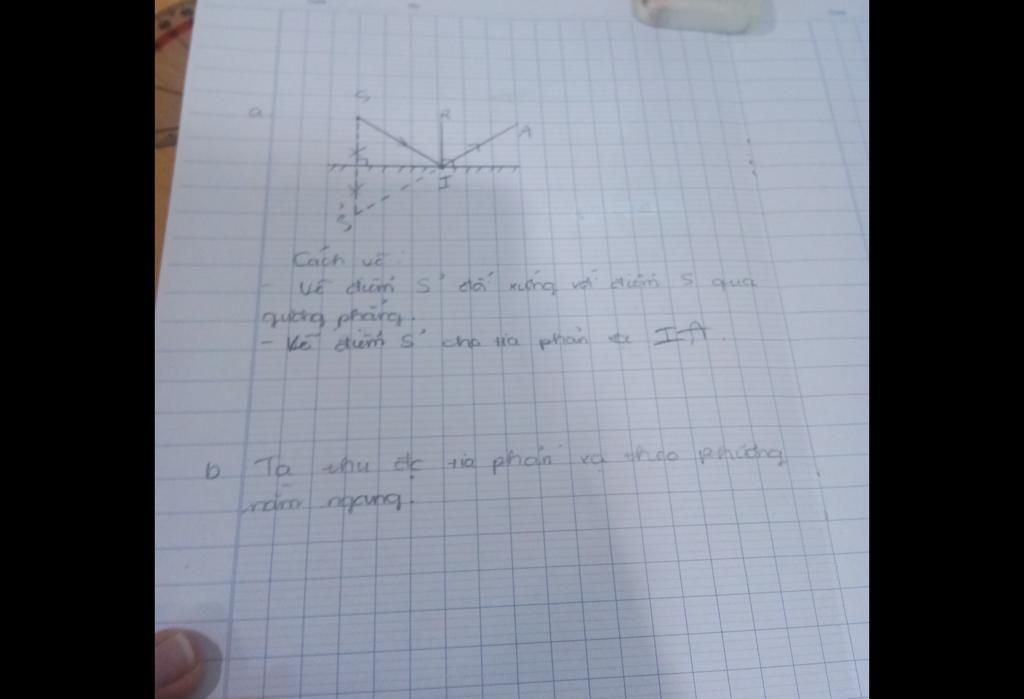 a
S
R
A
I
S'
Cách vẽ:
- Vẽ điểm S' đối xứng với điểm S qua
gương phẳng.
- Kẻ điểm S' cho tia phản IA.
b Ta thu đc tia phản xạ theo phương
nằm ngang.